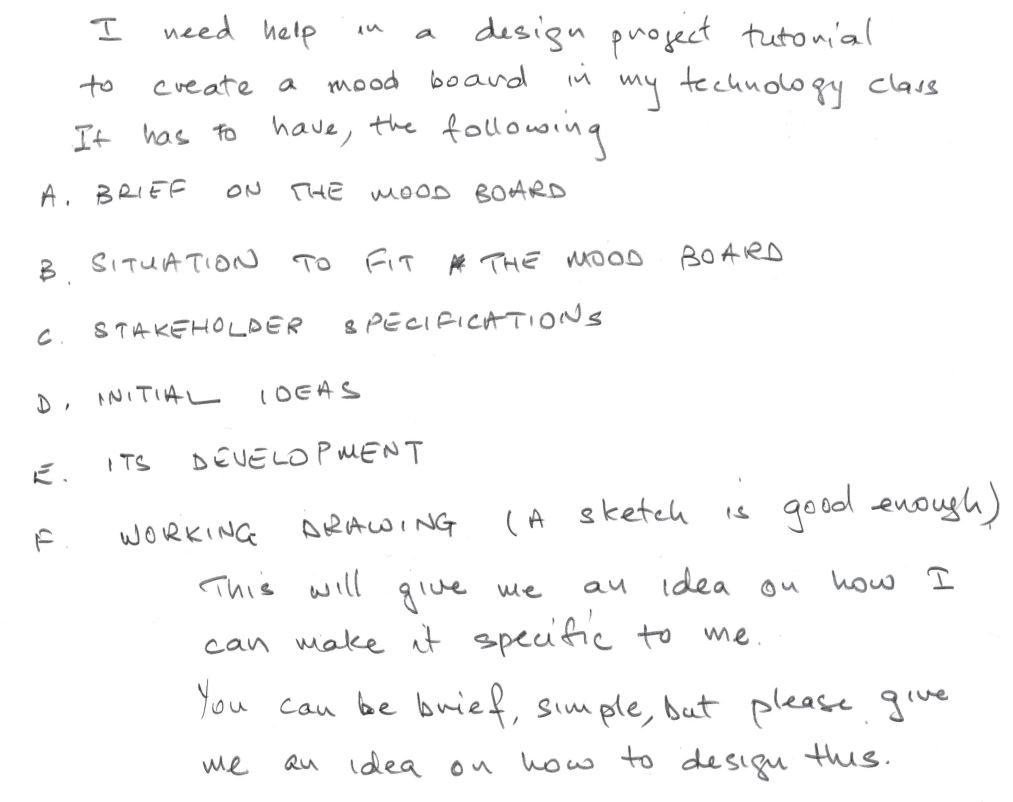 I need help in a design project tutorial
to create a mood board in my technology class
It has to have, the following
A. BRIEF ON THE MOOD BOARD
B. SITUATION TO FIT THE MOOD BOARD
C. STAKEHOLDER SPECIFICATIONS
D. INITIAL IDEAS
E. ITS DEVELOPMENT
F WORKING DRAWING (A sketch is good enough)
This will give me an idea on how I
can make it specific to me.
You can be brief, simple, but please give
me an idea on how to design this.